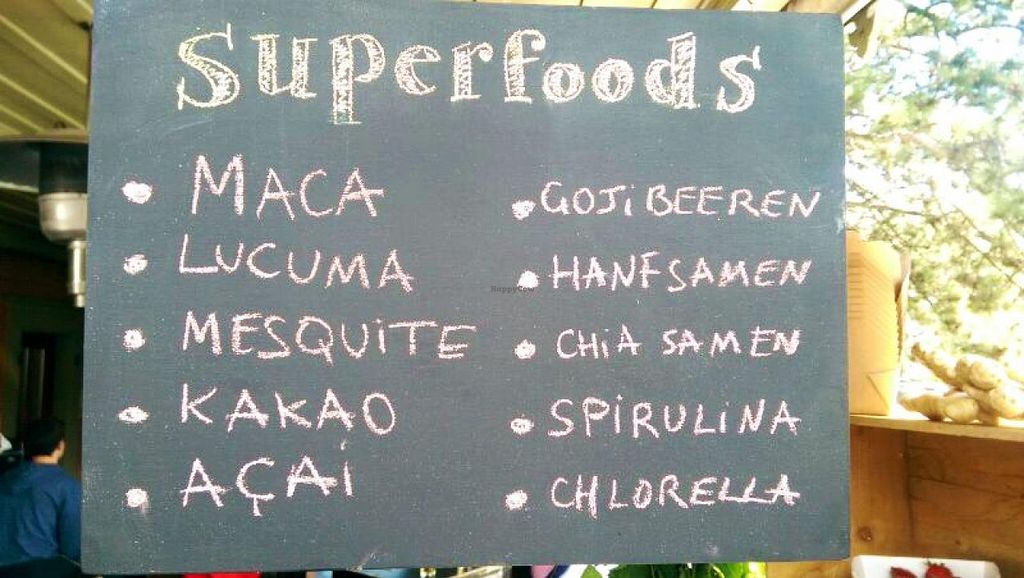 Superfoods
• MACA
• LUCUMA
• MESQUiTE
• KAKAO
• AÇAi
• GOJi BEEREN
• HANFSAMEN
• CHiA SAMEN
• SPiRULiNA
• CHLORELLA
HappyCow